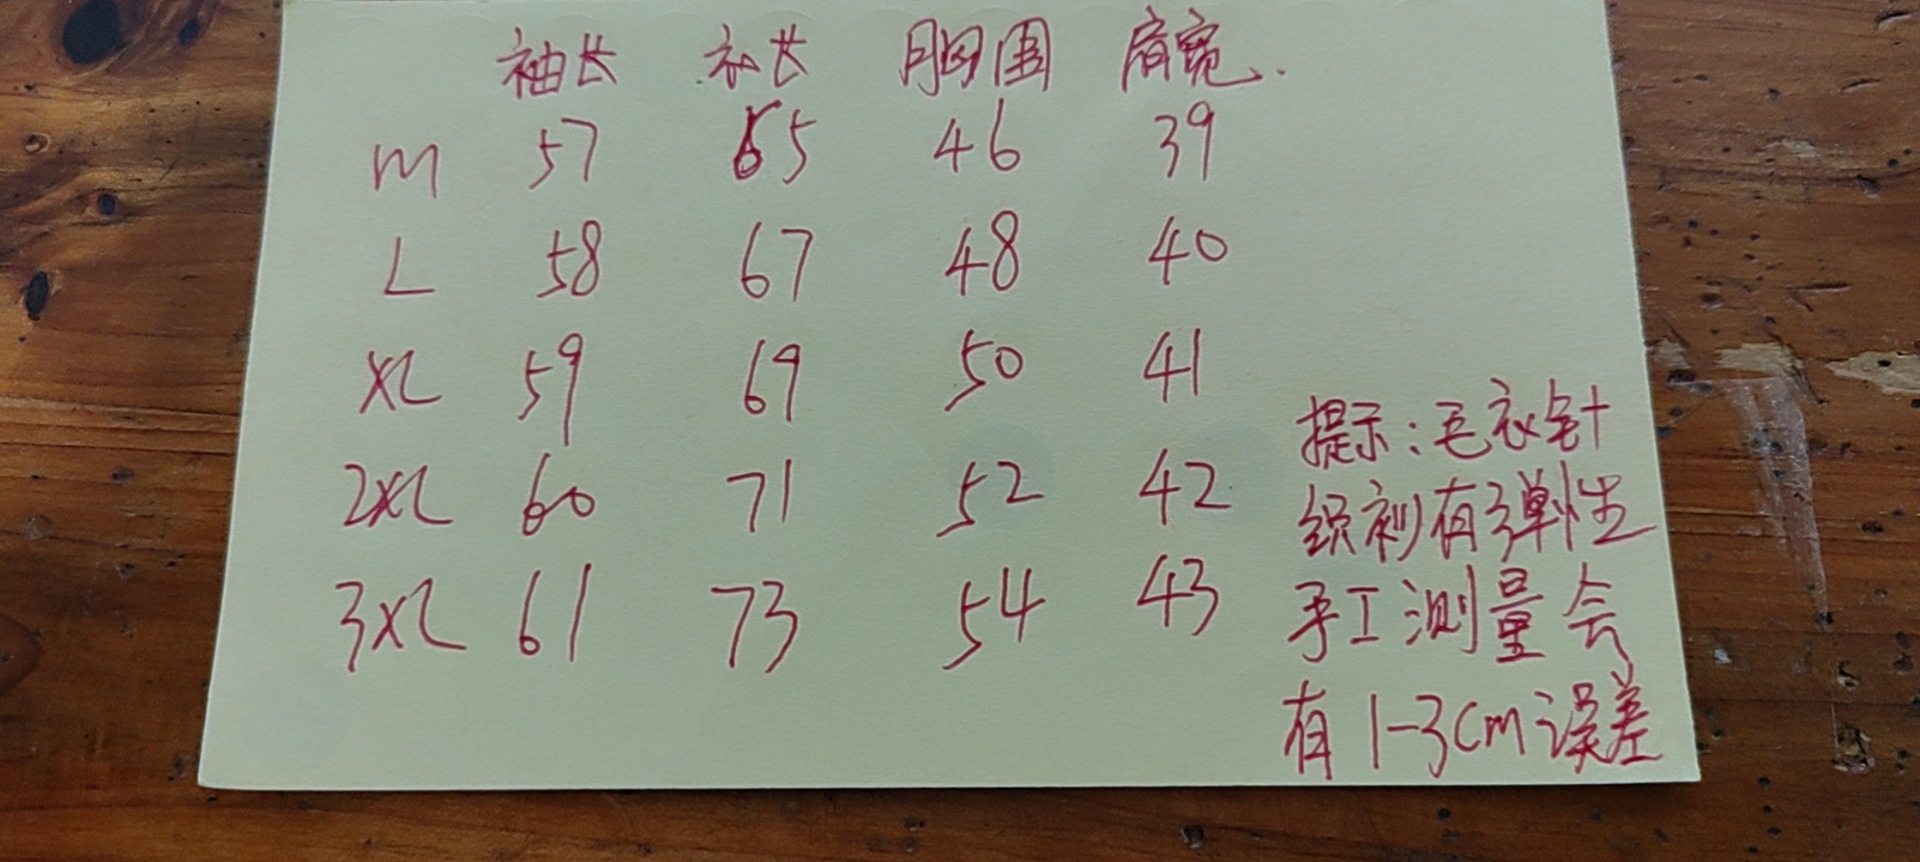 袖长 衣长 胸围 肩宽.
M 57 65 46 39
L 58 67 48 40
XL 59 69 50 41
2XL 60 71 52 42
3XL 61 73 54 43
提示:毛衣针
织衫有弹性
手工测量会
有1-3cm误差